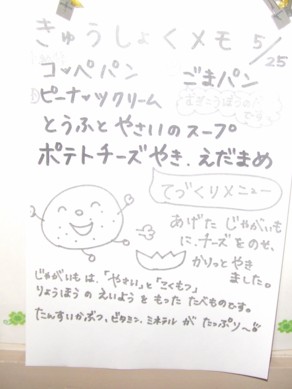 きゅうしょくメモ 5/25
コッペパン ごまパン
ピーナッツクリーム
とうふとやさいのスープ
ポテトチーズやき、えだまめ
てづくりメニュー
あげた じゃがいも
に、チーズをのせ、
かりっとやき
ました。
じゃがいもは、「やさい」と「こくもつ」
りょうほうのえいようをもったたべものです。
たんすいかぶつ、ビタミン、ミネラルがたっぷり〜!!